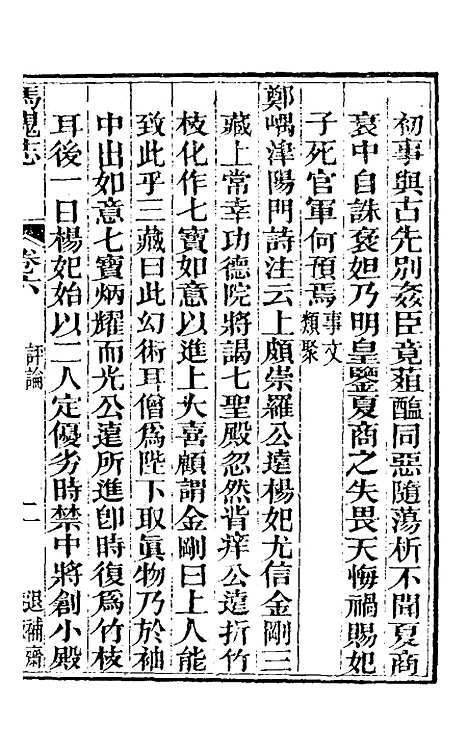 初事與古先別姦臣竟菹醢同惡隨蕩析不聞夏商
衰中自誅褒妲乃明皇鑒夏商之失畏天悔禍賜妃
子死官軍何預焉事文類聚
鄭嵎津陽門詩注云上頗崇羅公遠楊妃尤信金剛三
藏上常幸功德院將謁七聖殿忽然背痒公遠折竹
枝化作七寶如意以進上大喜顧謂金剛曰上人能
致此乎三藏曰此幻術耳僧爲陛下取眞物乃於袖
中出如意七寶炳耀而光公遠所進卽時復爲竹枝
耳後一日楊妃始以二人定優劣時禁中將創小殿
馬嵬志 卷六 評論 二 退補齋